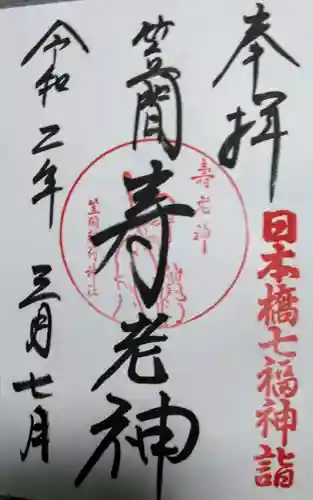 奉拝
日本橋七福神詣
笠間
寿老神
寿老神
笠間稲荷神社
令和二年三月七月